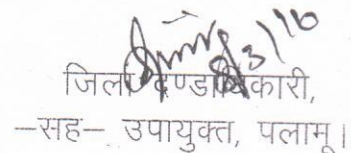 8/3/16
जिला दण्डाधिकारी,
–सह– उपायुक्त, पलामू।